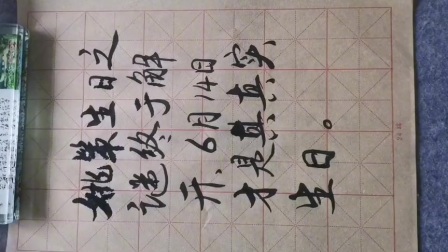 姚策生日之
谜终于解
开，6月14日
才是其真实
生日。